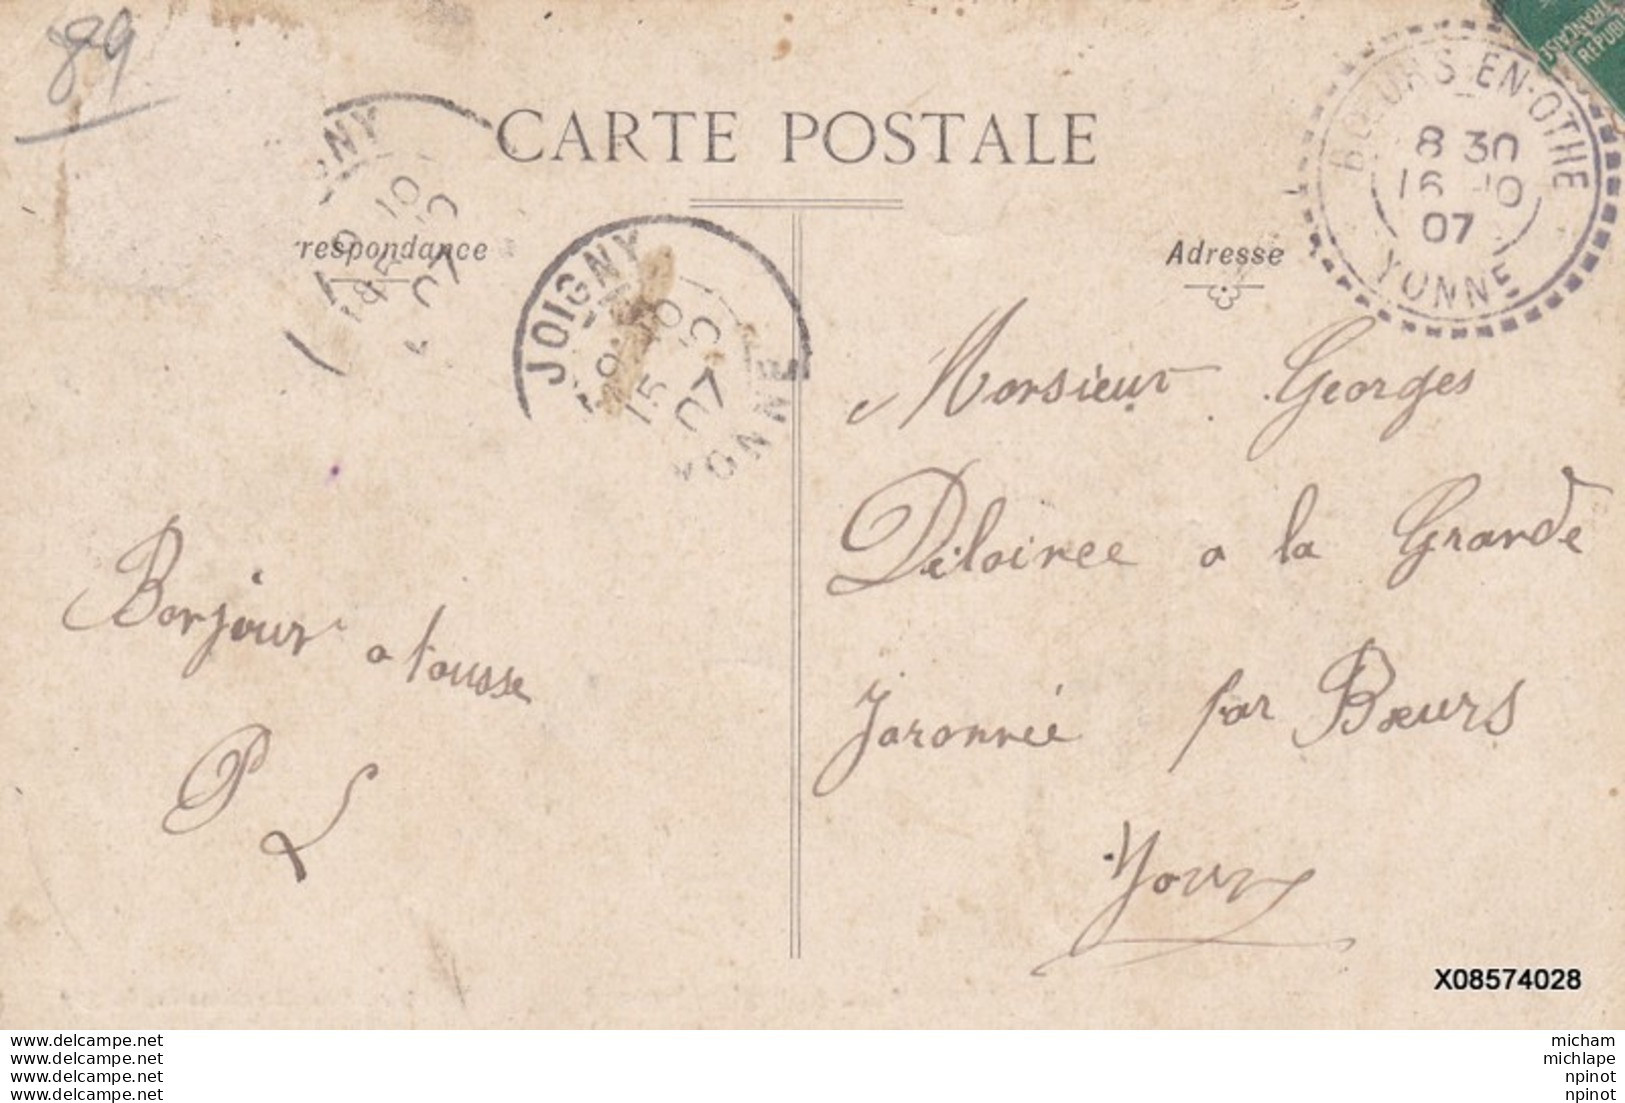 89
CARTE POSTALE
respondance
Adresse
JOIGNY
15 10
07
YONNE
BŒURS-EN-OTHE
8 30
16 10
07
YONNE
REPUBL
FRANÇAISE
Monsieur Georges
Diloinee a la Grande
Jaronnée par Bœurs
Yonne
Bonjour a tousse
P L
X08574028
www.delcampe.net
www.delcampe.net
www.delcampe.net
www.delcampe.net
micham
michlape
npinot
npinot